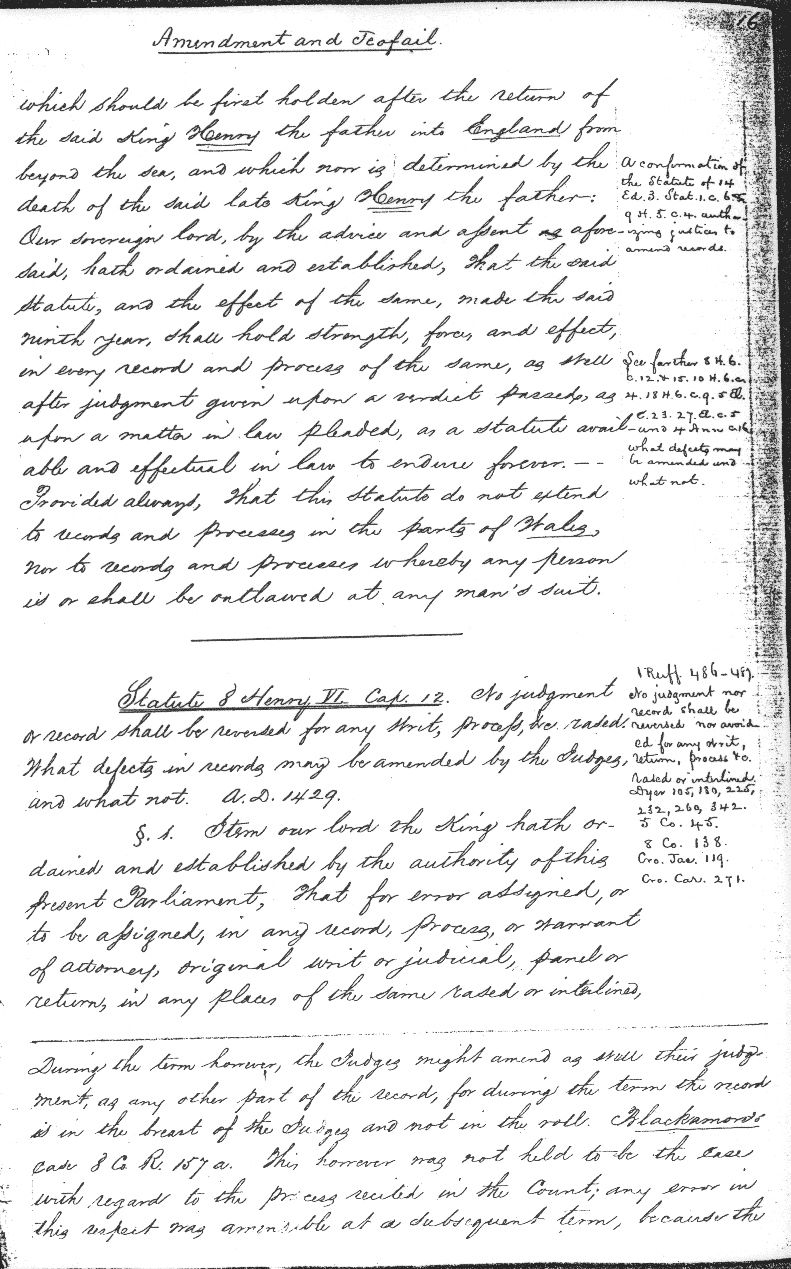 16
Amendment and Jeofail.
which should be first holden after the return of
the said King Henry the father into England from
beyond the sea, and which now is determined by the
death of the said late King Henry the father:
Our sovereign lord, by the advice and assent as afore-
said, hath ordained and established, That the said
statute, and the effect of the same, made the said
ninth year, shall hold strength, force, and effect,
in every record and process of the same, as well
after judgment given upon a verdict passed, as
upon a matter in law pleaded, as a statute avail-
able and effectual in law to endure forever. - -
Provided always, That this statute do not extend
to records and processes in the parts of Wales,
nor to records and processes whereby any person
is or shall be outlawed at any man's suit.
A confirmation of
the Statute of 14
Ed. 3. Stat. 1. c. 6 &
9 H. 5. c. 4. autho-
rizing justices to
amend records.
See farther 8 H. 6.
c. 12. & 15. 10 H. 6. c.
4. 18 H. 6. c. 9. 5 El.
c. 23. 27. El. c. 5
and 4 Ann c. 16
what defects may
be amended and
what not.
Statute 8 Henry VI. Cap. 12. No judgment
or record shall be reversed for any writ, process, &c. rased.
What defects in records may be amended by the Judges,
and what not. A.D. 1429.
§. 1. Item our lord the King hath or-
dained and established by the authority of this
present Parliament, That for error assigned, or
to be assigned, in any record, process, or warrant
of attorney, original writ or judicial, panel or
return, in any places of the same rased or interlined,
1 Ruff. 486-487.
No judgment nor
record shall be
reversed nor avoid-
ed for any writ,
return, process &c.
rased or interlined.
Dyer 105, 180, 225,
232, 260, 342.
5 Co. 45.
8 Co. 138.
Cro. Jac. 119.
Cro. Car. 271.
During the term however, the Judges might amend as well their judg-
ment, as any other part of the record, for during the term the record
is in the breast of the Judges and not in the roll. Blackamore's
case 8 Co. R. 157 a. This however was not held to be the case
with regard to the process recited in the Count; any error in
this respect was amensible at a subsequent term, because the